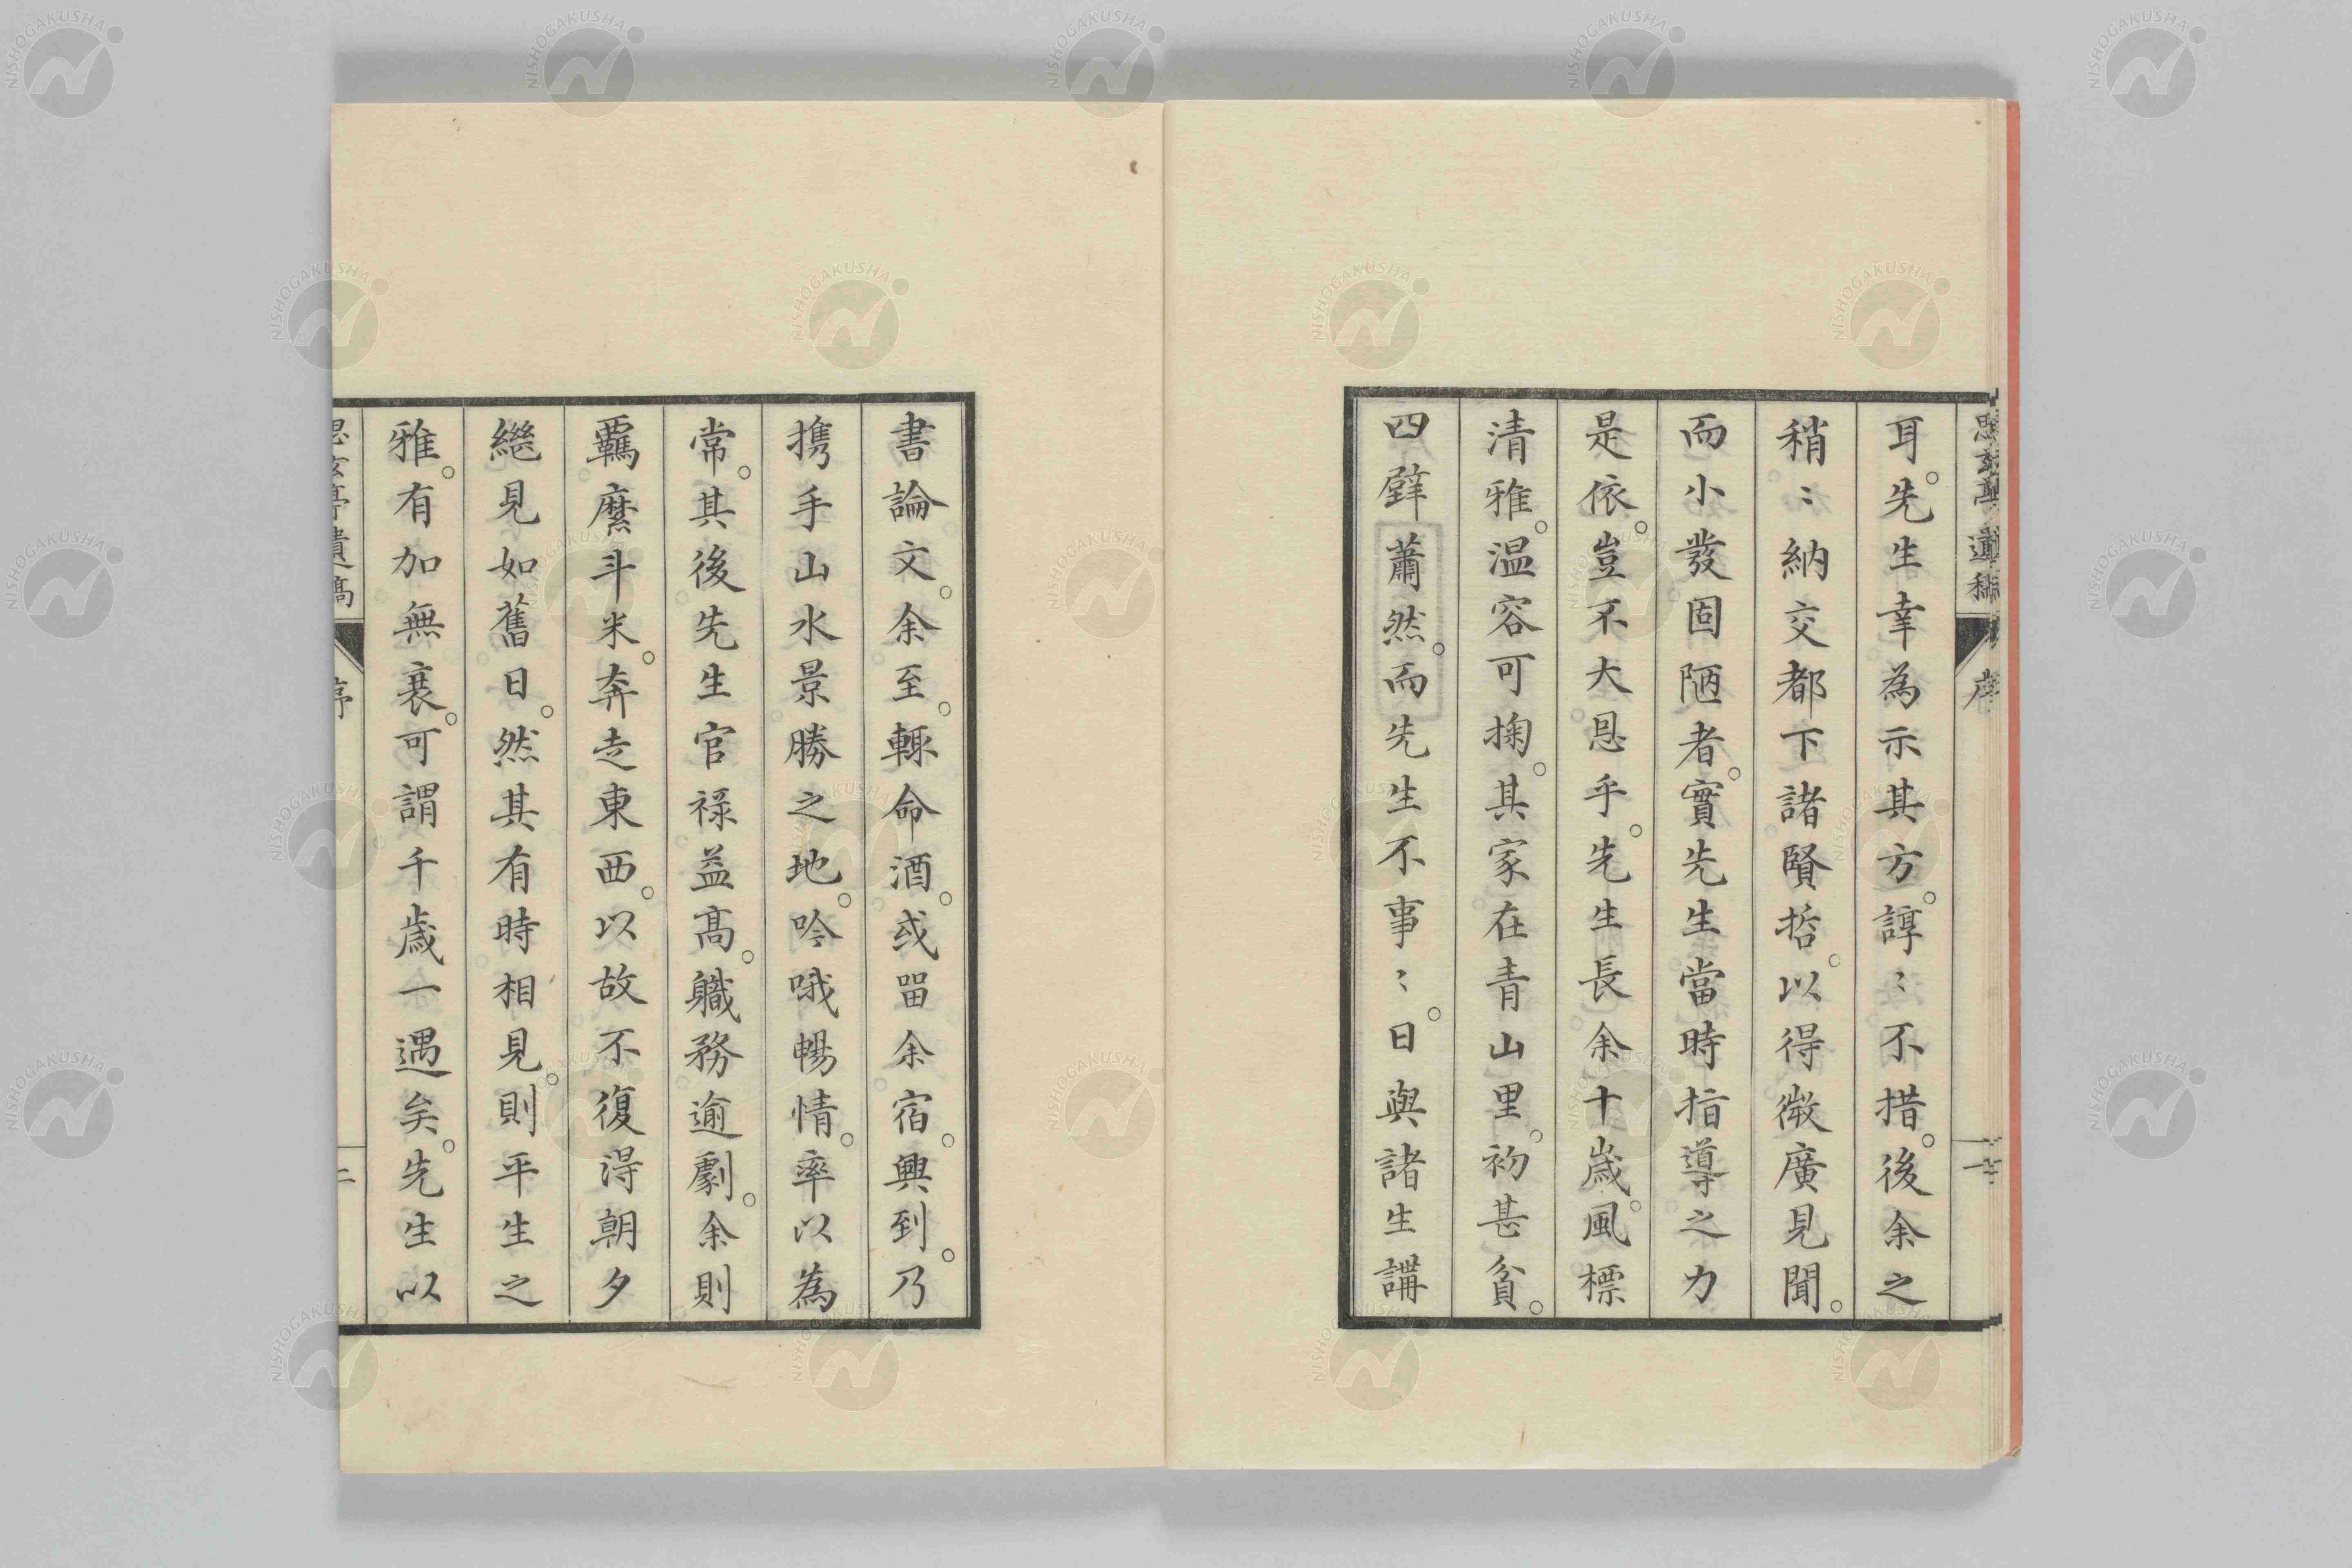 耳。先生幸為示其方。諄〻不措。後余之
稍〻納交都下諸賢哲。以得微廣見聞。
而小發固陋者。實先生當時指導之力
是依。豈不大恩乎。先生長余十歲。風標
清雅。温容可掬。其家在青山里。初甚貧。
四壁蕭然。而先生不事〻。日與諸生講
書論文。余至。輒命酒。或留余宿。興到。乃
携手山水景勝之地。吟哦暢情。率以為
常。其後先生官禄益髙。軄務逾劇。余則
羈縻斗米。奔走東西。以故不復得朝夕
繼見如舊日。然其有時相見。則平生之
雅。有加無衰。可謂千歲一遇矣。先生以
思玄亭遺稿
序
二